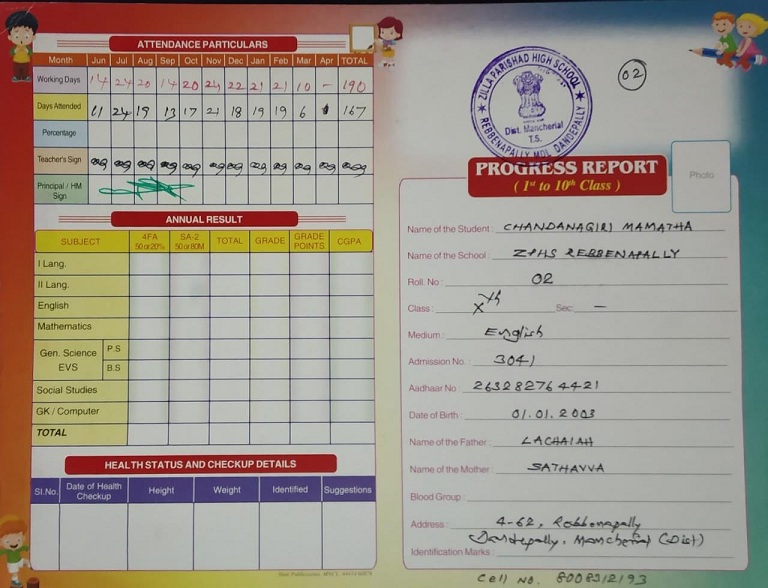 ATTENDANCE PARTICULARS
Month Jun Jul Aug Sep Oct Nov Dec Jan Feb Mar Apr TOTAL
Working Days 14 24 20 14 20 24 22 21 21 10 – 190
Days Attended 11 24 19 13 17 21 18 19 19 6 167
Percentage
Teacher's Sign
Principal / HM Sign
ANNUAL RESULT
SUBJECT 4FA 50 or 20% SA-2 50 or 80M TOTAL GRADE GRADE POINTS CGPA
I Lang.
II Lang.
English
Mathematics
Gen. Science EVS P.S
B.S
Social Studies
GK / Computer
TOTAL
HEALTH STATUS AND CHECKUP DETAILS
Sl.No. Date of Health Checkup Height Weight Identified Suggestions
ZILLA PARISHAD HIGH SCHOOL
Dist. Mancherial
T.S.
REBBENAPALLY MDL. DANDEPALLY
02
PROGRESS REPORT
( 1st to 10th Class )
Photo
Name of the Student : CHANDANAGIRI MAMATHA
Name of the School : ZPHS REBBENAPALLY
Roll. No : 02
Class : Xth Sec: —
Medium : English
Admission No. : 3041
Aadhaar No : 263282764421
Date of Birth : 01.01.2003
Name of the Father : LACHAIAH
Name of the Mother : SATHAVVA
Blood Group :
Address : 4-62, Rebbenapally
Dandepally, Mancherial (Dist)
Identification Marks :
Cell No. 8008312193